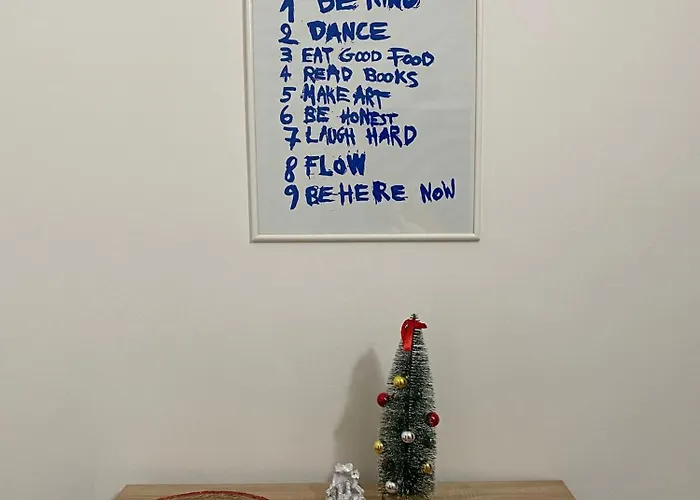 1 BE KIND
2 DANCE
3 EAT GOOD FOOD
4 READ BOOKS
5 MAKE ART
6 BE HONEST
7 LAUGH HARD
8 FLOW
9 BE HERE NOW